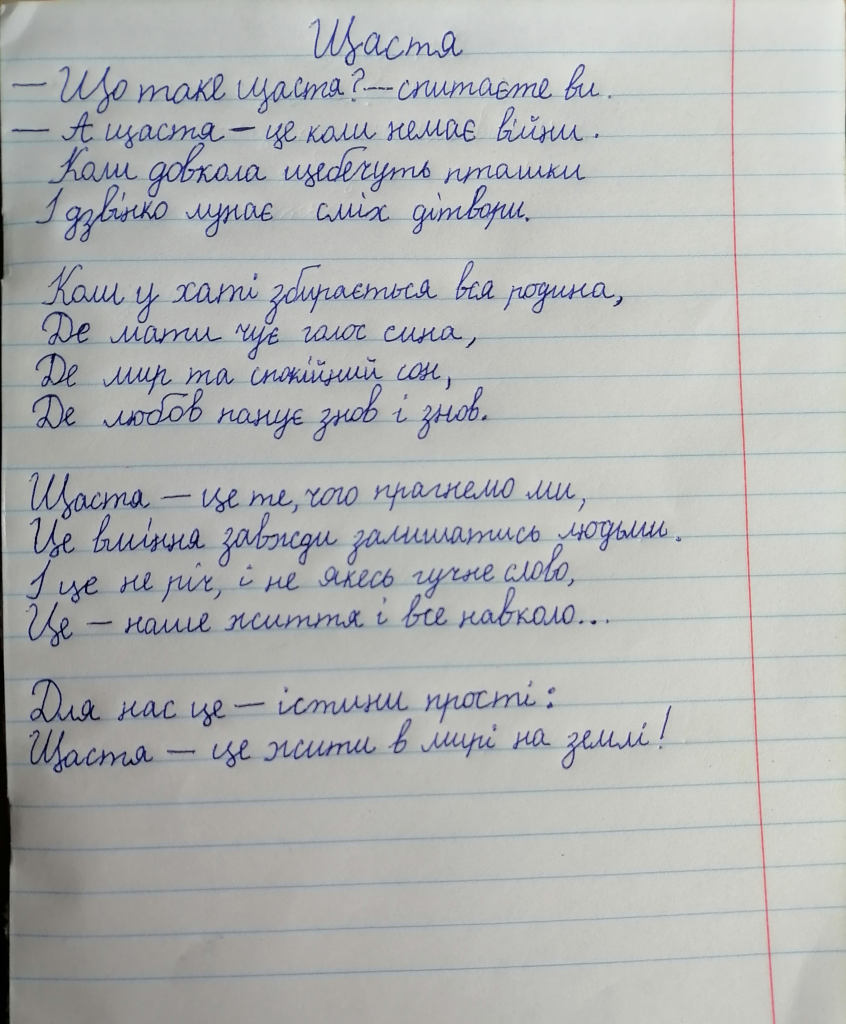 Щастя
— Що таке щастя? — спитаєте ви.
— А щастя — це коли немає війни.
Коли довкола щебечуть пташки
І дзвінко лунає сміх дітвори.
Коли у хаті збирається вся родина,
Де мати чує голос сина,
Де мир та спокійний сон,
Де любов панує знов і знов.
Щастя — це те, чого прагнемо ми,
Це вміння завжди залишатись людьми.
І це не річ, і не якесь гучне слово,
Це — наше життя і все навколо...
Для нас це — істини прості:
Щастя — це жити в мирі на землі!